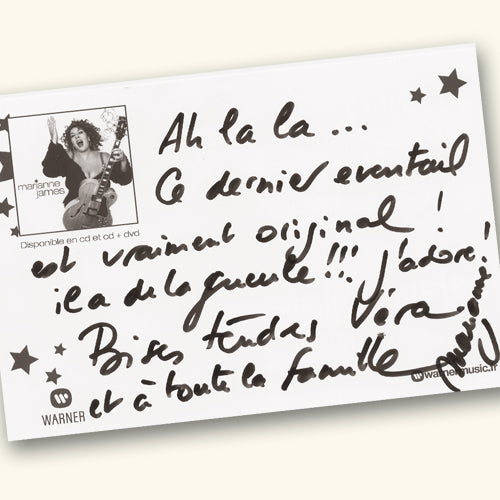 marianne
james
Disponible en cd et cd + dvd
Ah la la ...
Ce dernier eventail
est vraiment original !
il a de la gueule !!! j'adore !
Bises tendres Véra
et à toute la famille
Marianne
WARNER
warnermusic.fr